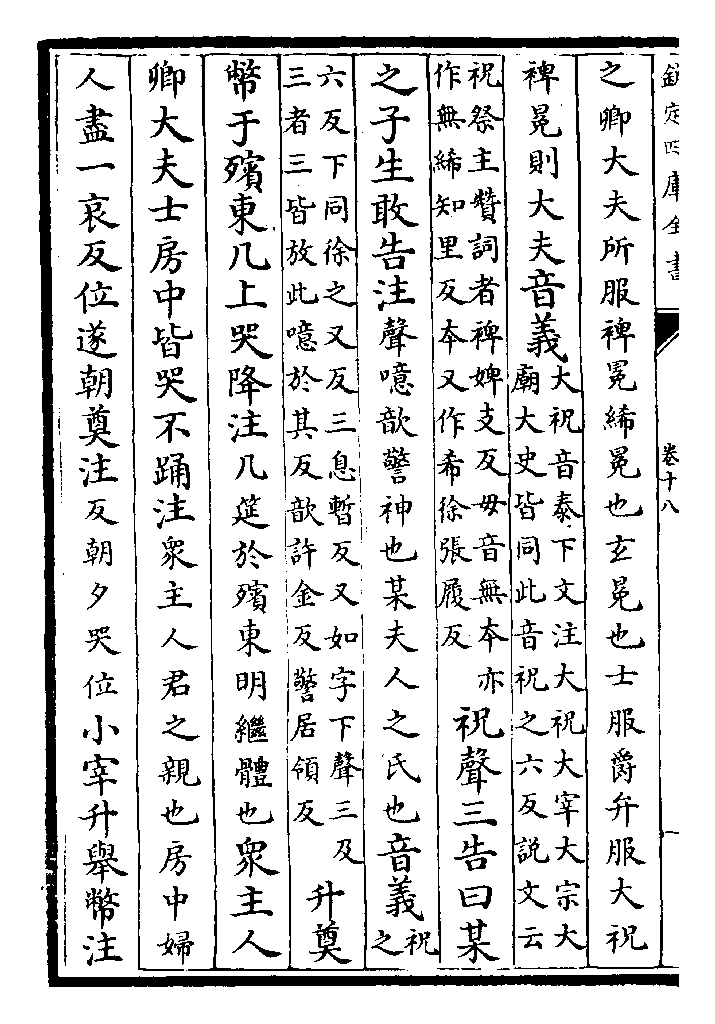 欽定四庫全書
卷十八
一
之卿大夫所服裨冕絺冕也玄冕也士服爵弁服大祝
裨冕則大夫音義大祝音泰下文注大祝大宰大宗大
廟大史皆同此音祝之六反説文云
祝祭主贊詞者裨婢支反毋音無本亦
作無絺知里反本又作希徐張履反
祝聲三告曰某
之子生敢告注聲噫歆警神也某夫人之氏也音義祝
之
六反下同徐之又反三息暫反又如字下聲三及
三者三皆放此噫於其反歆許金反警居領反
升奠
幣于殯東几上哭降注几筵於殯東明繼體也衆主人
卿大夫士房中皆哭不踊注衆主人君之親也房中婦
人盡一哀反位遂朝奠注反朝夕哭位小宰升舉幣注